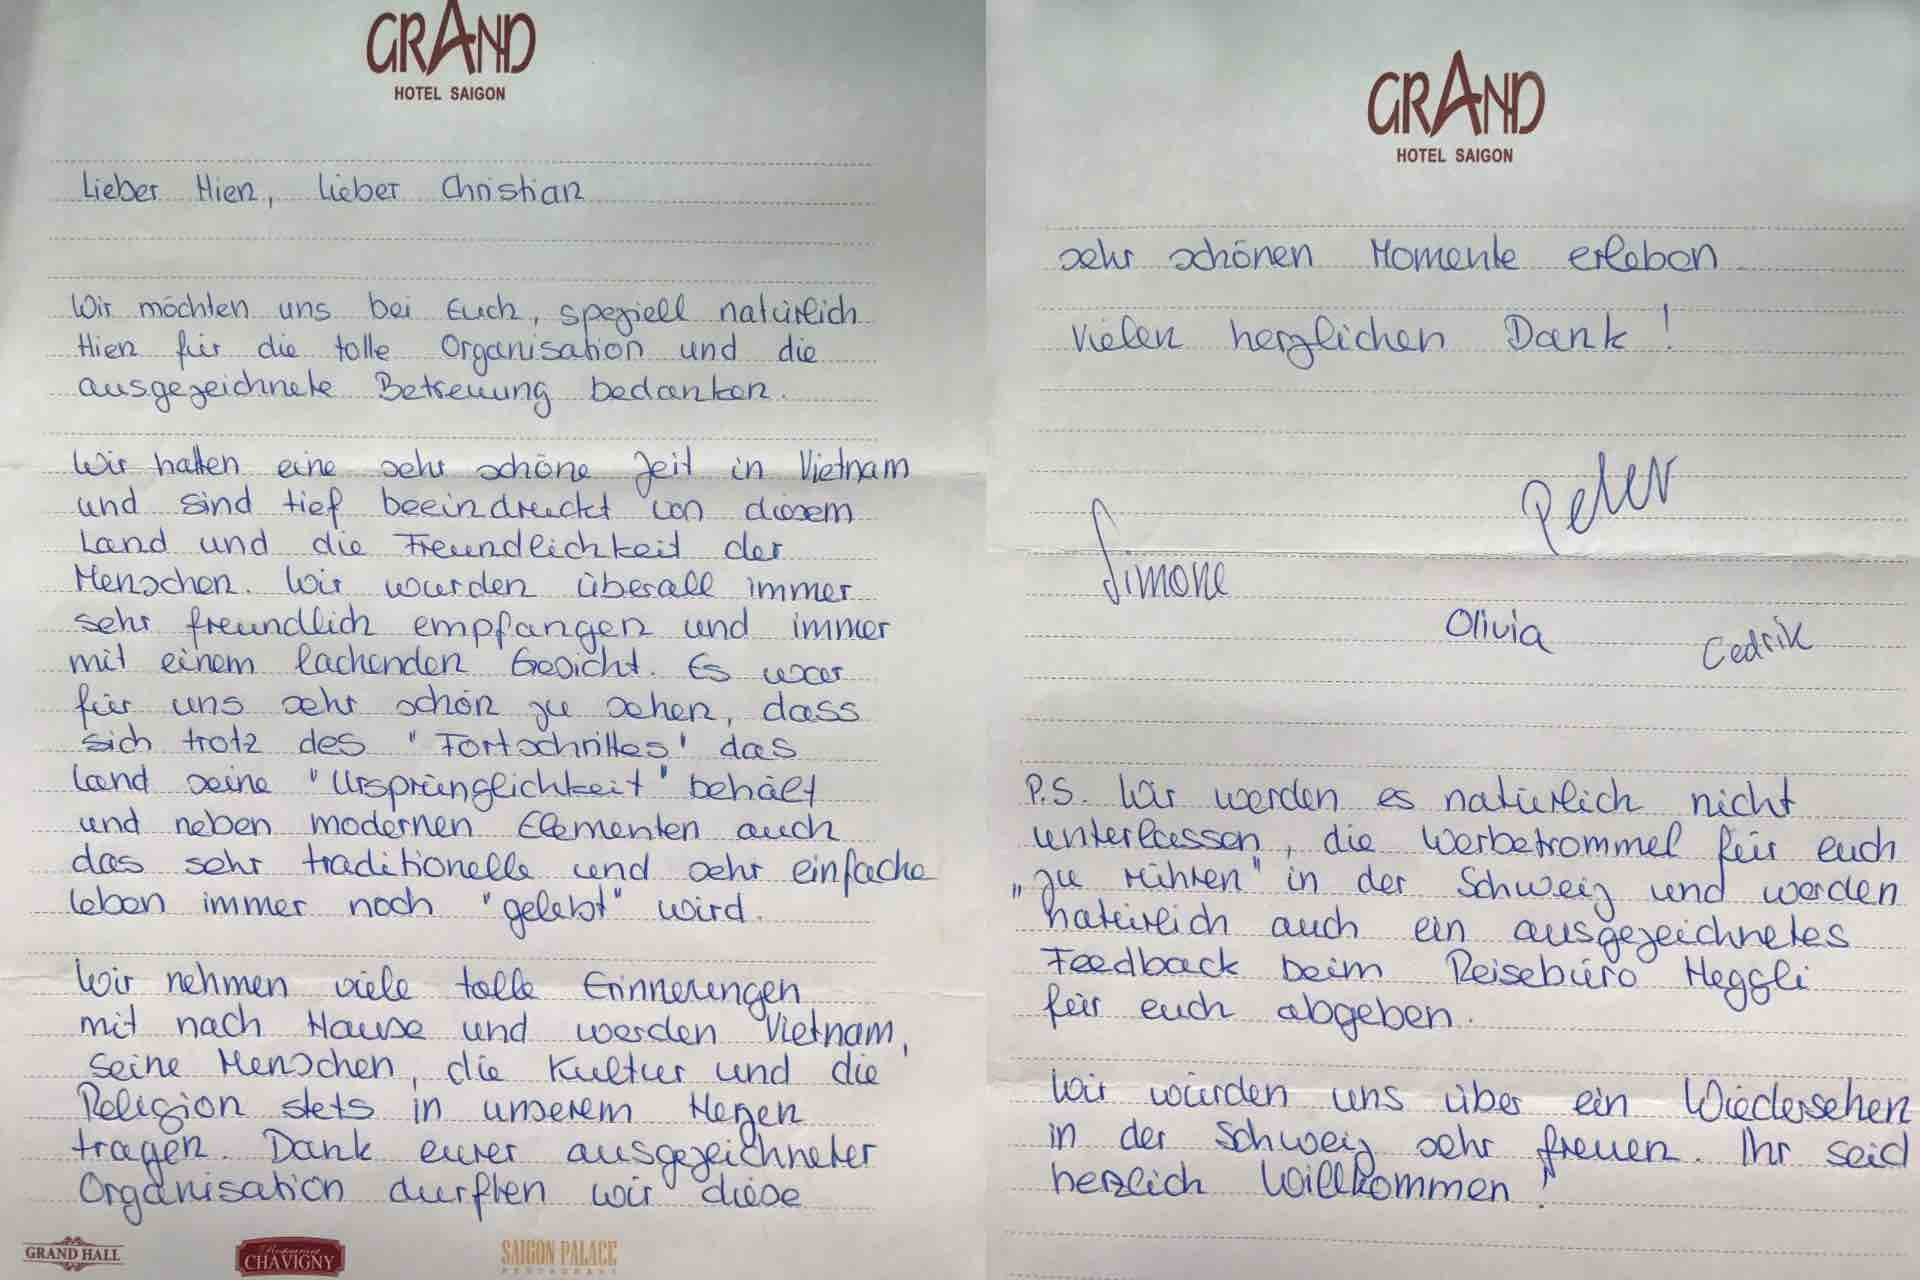 GRAND
HOTEL SAIGON
Lieber Hien, lieber Christian
Wir möchten uns bei Euch, speziell natürlich
Hien für die tolle Organisation und die
ausgezeichnete Betreuung bedanken.
Wir hatten eine sehr schöne Zeit in Vietnam
und sind tief beeindruckt von diesem
Land und die Freundlichkeit der
Menschen. Wir wurden überall immer
sehr freundlich empfangen und immer
mit einem lachenden Gesicht. Es war
für uns sehr schön zu sehen, dass
sich trotz des "Fortschrittes" das
Land seine "Ursprünglichkeit" behält
und neben modernen Elementen auch
das sehr traditionelle und sehr einfache
Leben immer noch "gelebt" wird.
Wir nehmen viele tolle Erinnerungen
mit nach Hause und werden Vietnam,
seine Menschen, die Kultur und die
Religion stets in unserem Herzen
tragen. Dank eurer ausgezeichneter
Organisation durften wir diese
GRAND HALL
Restaurant
CHAVIGNY
SAIGON PALACE
RESTAURANT
GRAND
HOTEL SAIGON
sehr schönen Momente erleben
Vielen herzlichen Dank!
Peter
Simone
Olivia
Cedrik
P.S. Wir werden es natürlich nicht
unterlassen, die Werbetrommel für euch
„zu rühren" in der Schweiz und werden
natürlich auch ein ausgezeichnetes
Feedback beim Reisebüro Heggli
für euch abgeben.
Wir würden uns über ein Wiedersehen
in der Schweiz sehr freuen. Ihr seid
herzlich Willkommen!